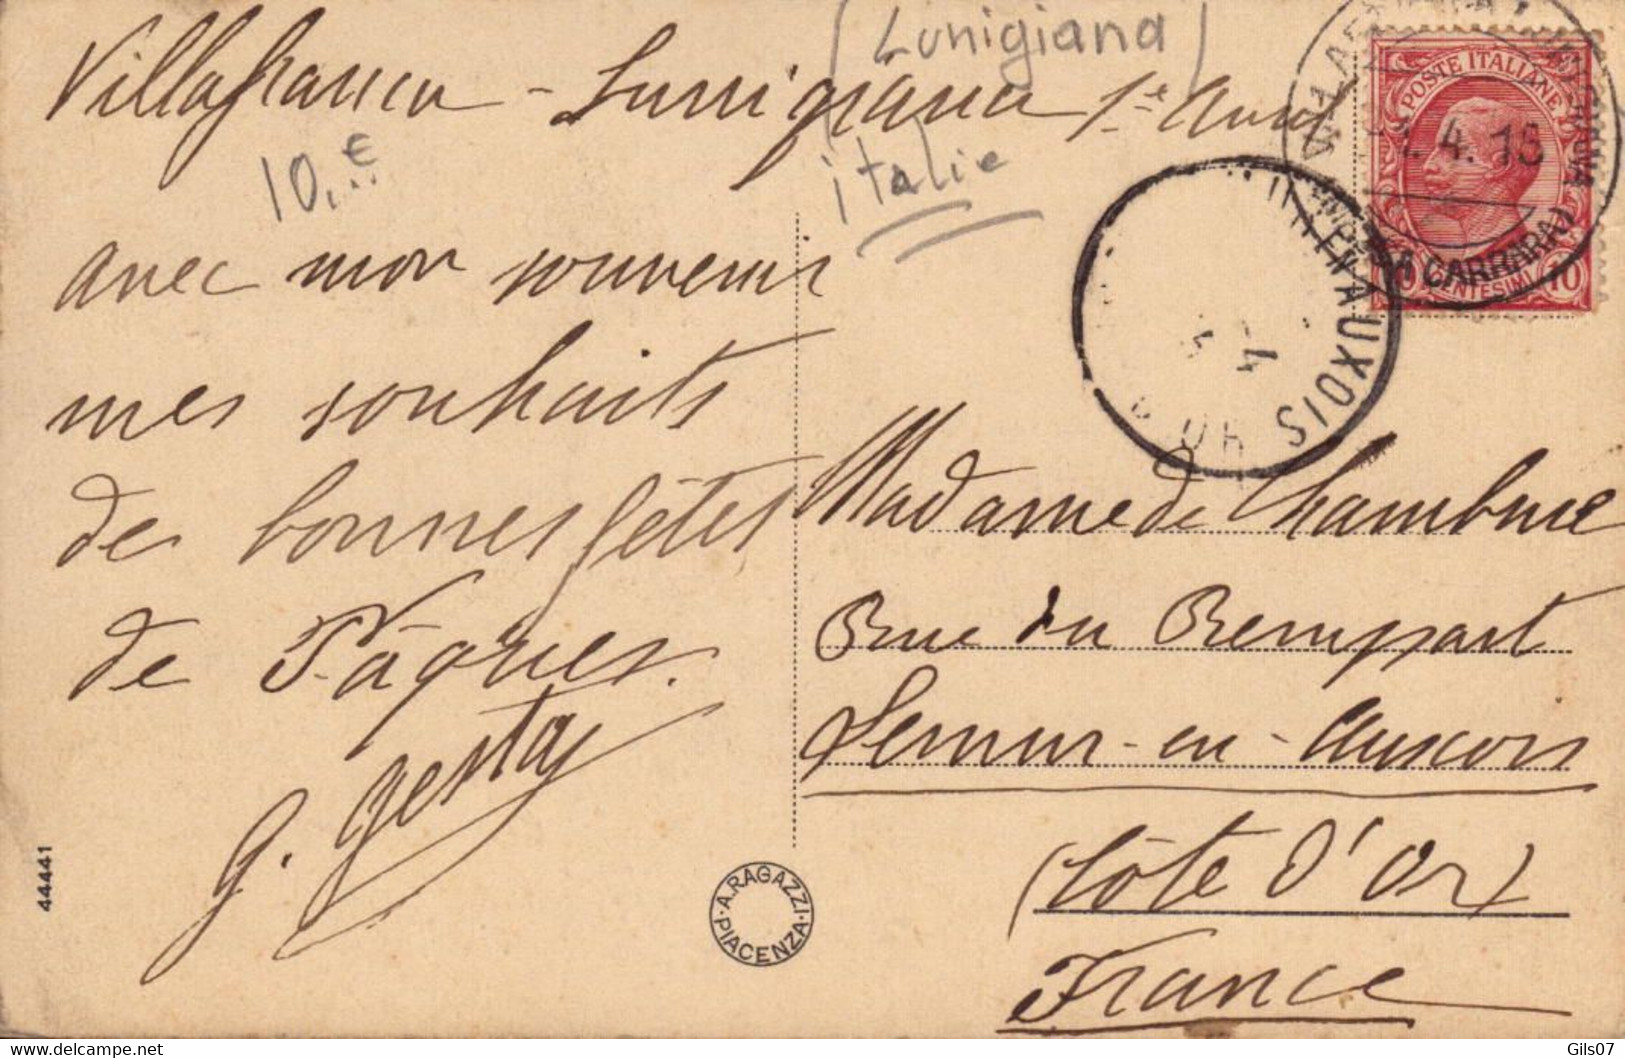 (Lunigiana)
Villafranca - Lunigiana 1er Avril
italie
10,..€
avec mon souvenir
mes souhaits
des bonnes fêtes
de Pâques.
G. Gesta
POSTE ITALIANE
10 CENTESIMI 10
4. 13
MASSA CARRARA
EN AUXOIS
Madame de Chambure
Rue du Rempart
Semur-en-Auxois
(Côte d'Or)
France
44441
A. RAGAZZI · PIACENZA ·
Gils07